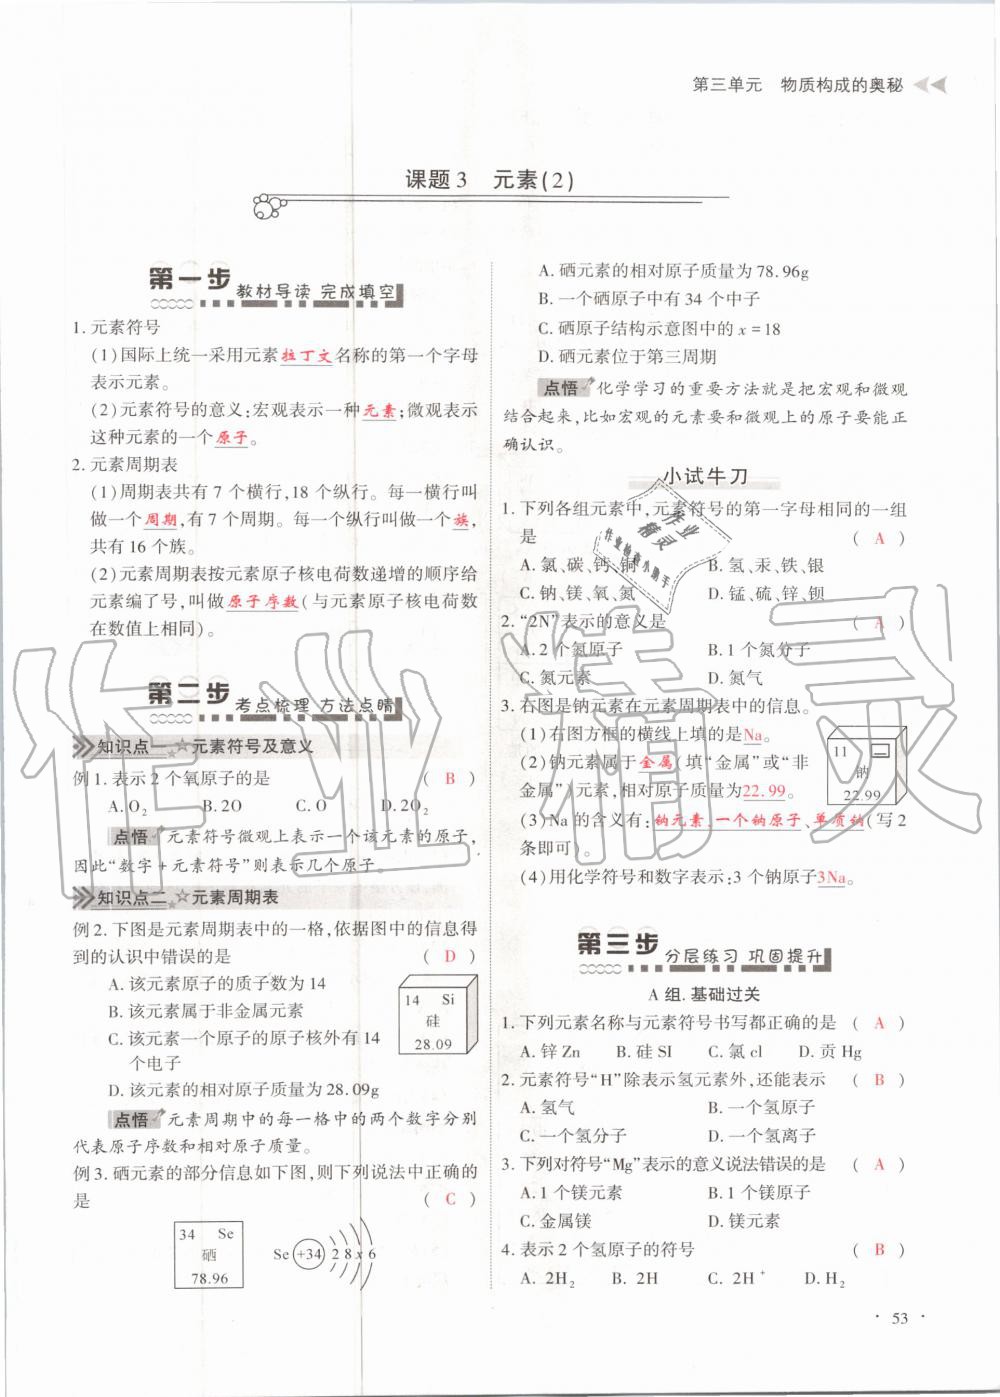 第三单元 物质构成的奥秘
课题3 元素(2)
第一步 教材导读 完成填空
1. 元素符号
(1)国际上统一采用元素拉丁文名称的第一个字母
表示元素。
(2)元素符号的意义:宏观表示一种元素;微观表示
这种元素的一个原子。
2. 元素周期表
(1)周期表共有7个横行,18个纵行。每一横行叫
做一个周期,有7个周期。每一个纵行叫做一个族,
共有16个族。
(2)元素周期表按元素原子核电荷数递增的顺序给
元素编了号,叫做原子序数(与元素原子核电荷数
在数值上相同)。
第二步 考点梳理 方法点睛
知识点一 ☆元素符号及意义
例1. 表示2个氧原子的是 ( B )
A. O₂ B. 2O C. O D. 2O₂
点悟 元素符号微观上表示一个该元素的原子,
因此“数字+元素符号”则表示几个原子
知识点二 ☆元素周期表
例2. 下图是元素周期表中的一格,依据图中的信息得
到的认识中错误的是 ( D )
A. 该元素原子的质子数为14
B. 该元素属于非金属元素
C. 该元素一个原子的原子核外有14
个电子
D. 该元素的相对原子质量为28.09g
14 Si
硅
28.09
点悟 元素周期中的每一格中的两个数字分别
代表原子序数和相对原子质量。
例3. 硒元素的部分信息如下图,则下列说法中正确的
是 ( C )
34 Se
硒
78.96
Se +34 2 8 x 6
A. 硒元素的相对原子质量为78.96g
B. 一个硒原子中有34个中子
C. 硒原子结构示意图中的x=18
D. 硒元素位于第三周期
点悟 化学学习的重要方法就是把宏观和微观
结合起来,比如宏观的元素要和微观上的原子要能正
确认识。
小试牛刀
1. 下列各组元素中,元素符号的第一字母相同的一组
是 ( A )
A. 氯、碳、钙、铜 B. 氢、汞、铁、银
C. 钠、镁、氧、氮 D. 锰、硫、锌、钡
2. “2N”表示的意义是 ( A )
A. 2个氮原子 B. 1个氮分子
C. 氮元素 D. 氮气
3. 右图是钠元素在元素周期表中的信息。
(1)右图方框的横线上填的是Na。
(2)钠元素属于金属(填“金属”或“非
金属”)元素,相对原子质量为22.99。
(3)Na的含义有:钠元素、一个钠原子、单质钠(写2
条即可)。
(4)用化学符号和数字表示:3个钠原子3Na。
11
钠
22.99
第三步 分层练习 巩固提升
A组. 基础过关
1. 下列元素名称与元素符号书写都正确的是 ( A )
A. 锌Zn B. 硅SI C. 氯cl D. 贡Hg
2. 元素符号“H”除表示氢元素外,还能表示 ( B )
A. 氢气 B. 一个氢原子
C. 一个氢分子 D. 一个氢离子
3. 下列对符号“Mg”表示的意义说法错误的是 ( A )
A. 1个镁元素 B. 1个镁原子
C. 金属镁 D. 镁元素
4. 表示2个氢原子的符号 ( B )
A. 2H₂ B. 2H C. 2H⁺ D. H₂
· 53 ·
作业精灵
作业
精灵
作业检查小助手